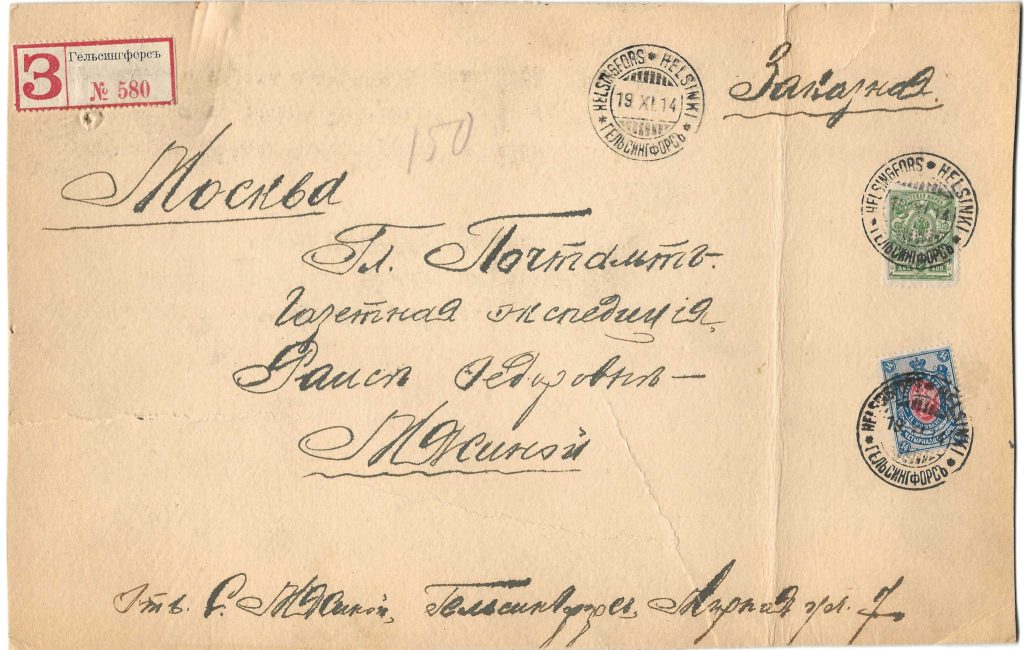 З Гельсингфорсъ
№ 580
HELSINGFORS * HELSINKI * ГЕЛЬСИНГФОРСЪ *
19 XI 14
Заказная
150
Москва
Гл. Почтамтъ.
Газетная экспедицiя
Раисѣ Федоровнѣ —
HELSINGFORS * HELSINKI * ГЕЛЬСИНГФОРСЪ *
HELSINGFORS * HELSINKI * ГЕЛЬСИНГФОРСЪ *
Отв. С. Гельсингфорсъ, 7.